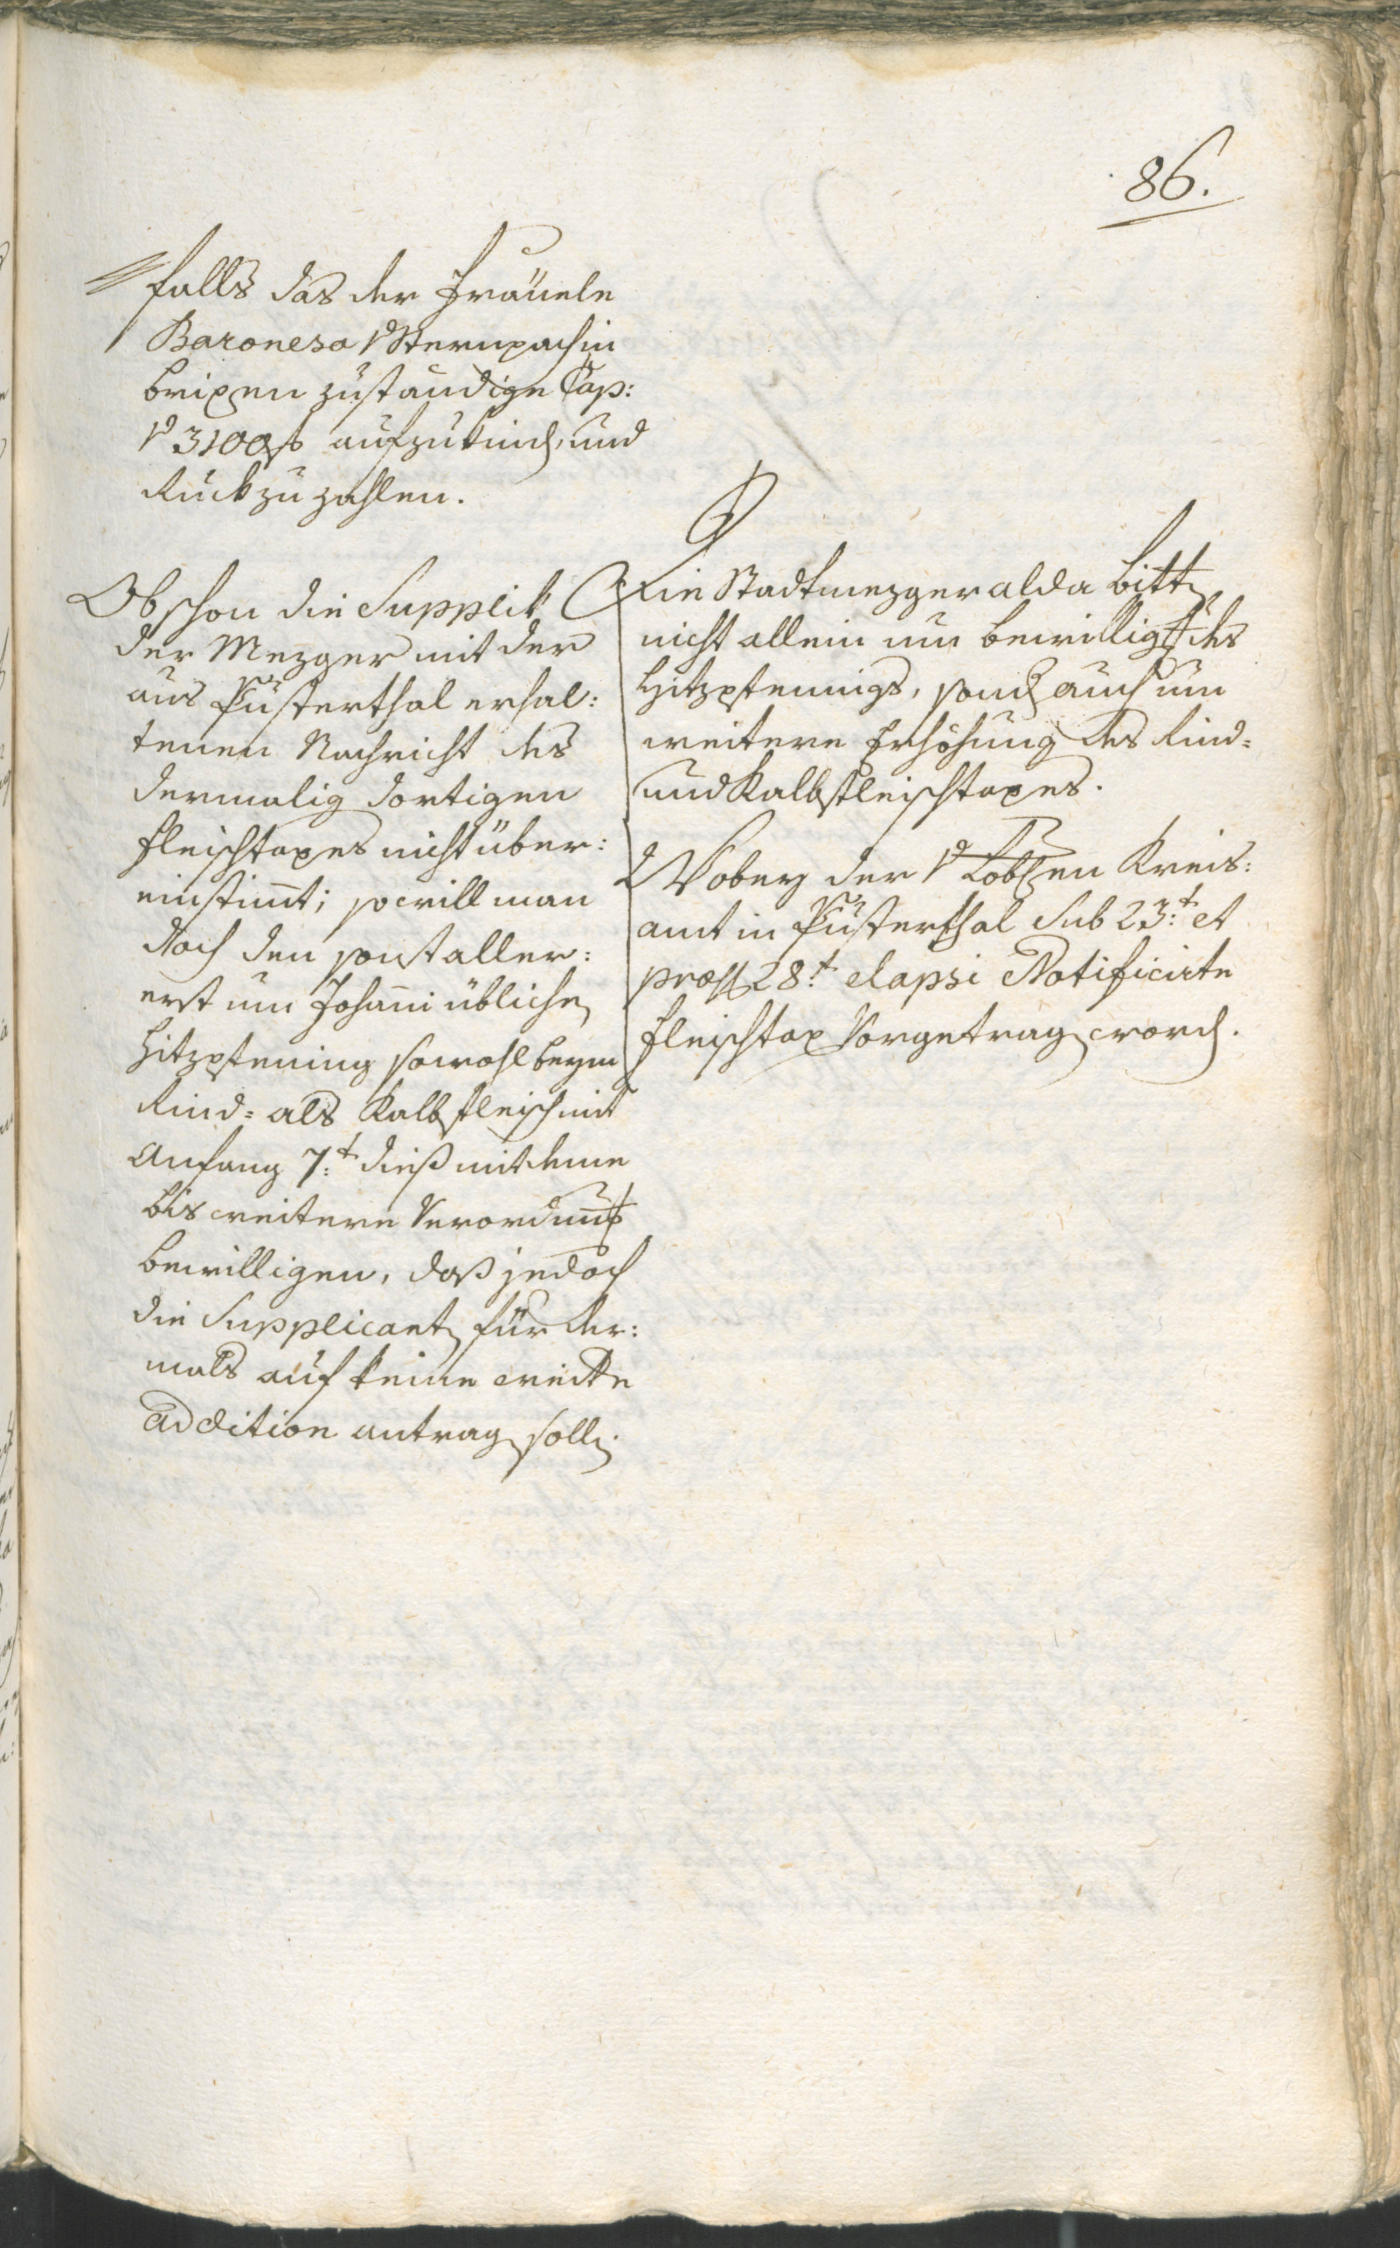 86.
falls das der Fräuele
Baronesa v Sternpach in
brixen zuständige Cap:
v 3100 f aufzukind, und
Rückzuzahlen.
Obschon die Supplik
der Mezger mit der
aus Pusterthal erhal:
tenen Nachricht des
dermalig dortigen
fleischtaxes nicht über:
einstimt; so will man
doch den sonst aller:
erst um Johani übliche
Hitzpfening sowohl beym
Rind= als Kalbfleisch mit
Anfang 7.t dieß mit deme
bis weitere Verordnung
bewilligen, daß jedoch
die Supplicant für der:
mals auf keine weitte
addition antrag solle.
Die Stadtmezger alda bitt
nicht allein um bewillig des
Hitzpfennigs, sond auch um
weitere Erhöhung des Rind=
und Kalbfleischtaxes.
Wobey der v Lobl en Kreis:
amt in Pusterthal Sub 23.t et
præs 28.t elapsi Notificirte
fleischtax Vorgetrag word.